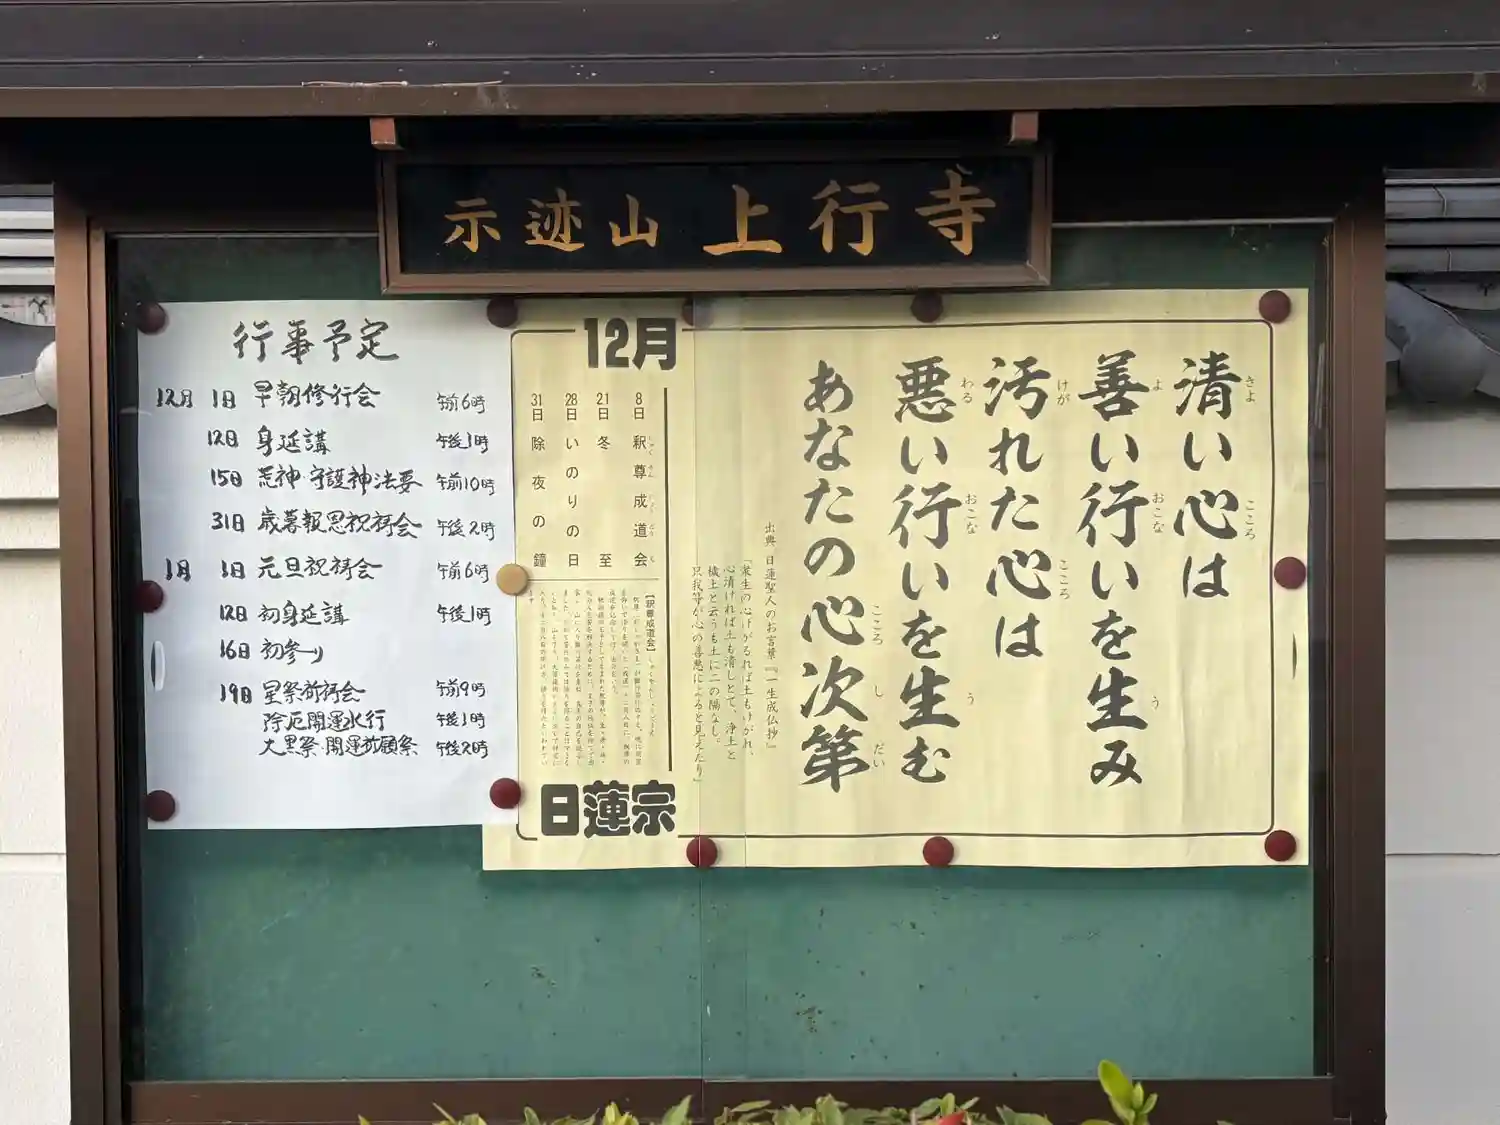 示迹山 上行寺
行事予定
12月 1日 早朝修行会 午前6時
12日 身延講 午後1時
15日 荒神・守護神法要 午前10時
31日 歳暮報恩祝祷会 午後2時
1月 1日 元旦祝祷会 午前6時
12日 初身延講 午後1時
16日 初参り
19日 星祭祈祷会 午前9時
除厄開運水行 午後1時
大黒祭・開運祈願祭 午後2時
清い心は
善い行いを生み
汚れた心は
悪い行いを生む
あなたの心次第
出典 日蓮聖人のお言葉『一生成仏抄』
「衆生の心けがるれば土もけがれ、
心清ければ土も清しとて、浄土と
穢土と云うも土に二の隔なし。
只我等が心の善悪によると見えたり」
12月
8日 釈尊成道会
21日 冬至
28日 いのりの日
31日 除夜の鐘
【釈尊成道会】
日蓮宗